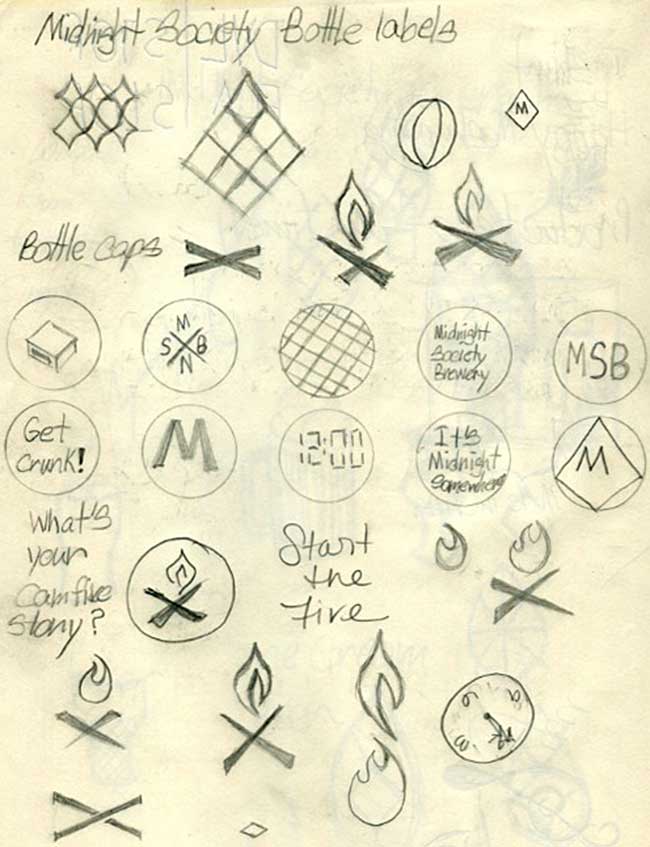 Midnight Society Bottle labels
M
Bottle caps
M
S B
N
Midnight
Society
Brewery
MSB
Get
Crunk!
M
12:00
It's
Midnight
Somewhere
M
What's
your
Camfire
Story?
Start
the
Fire